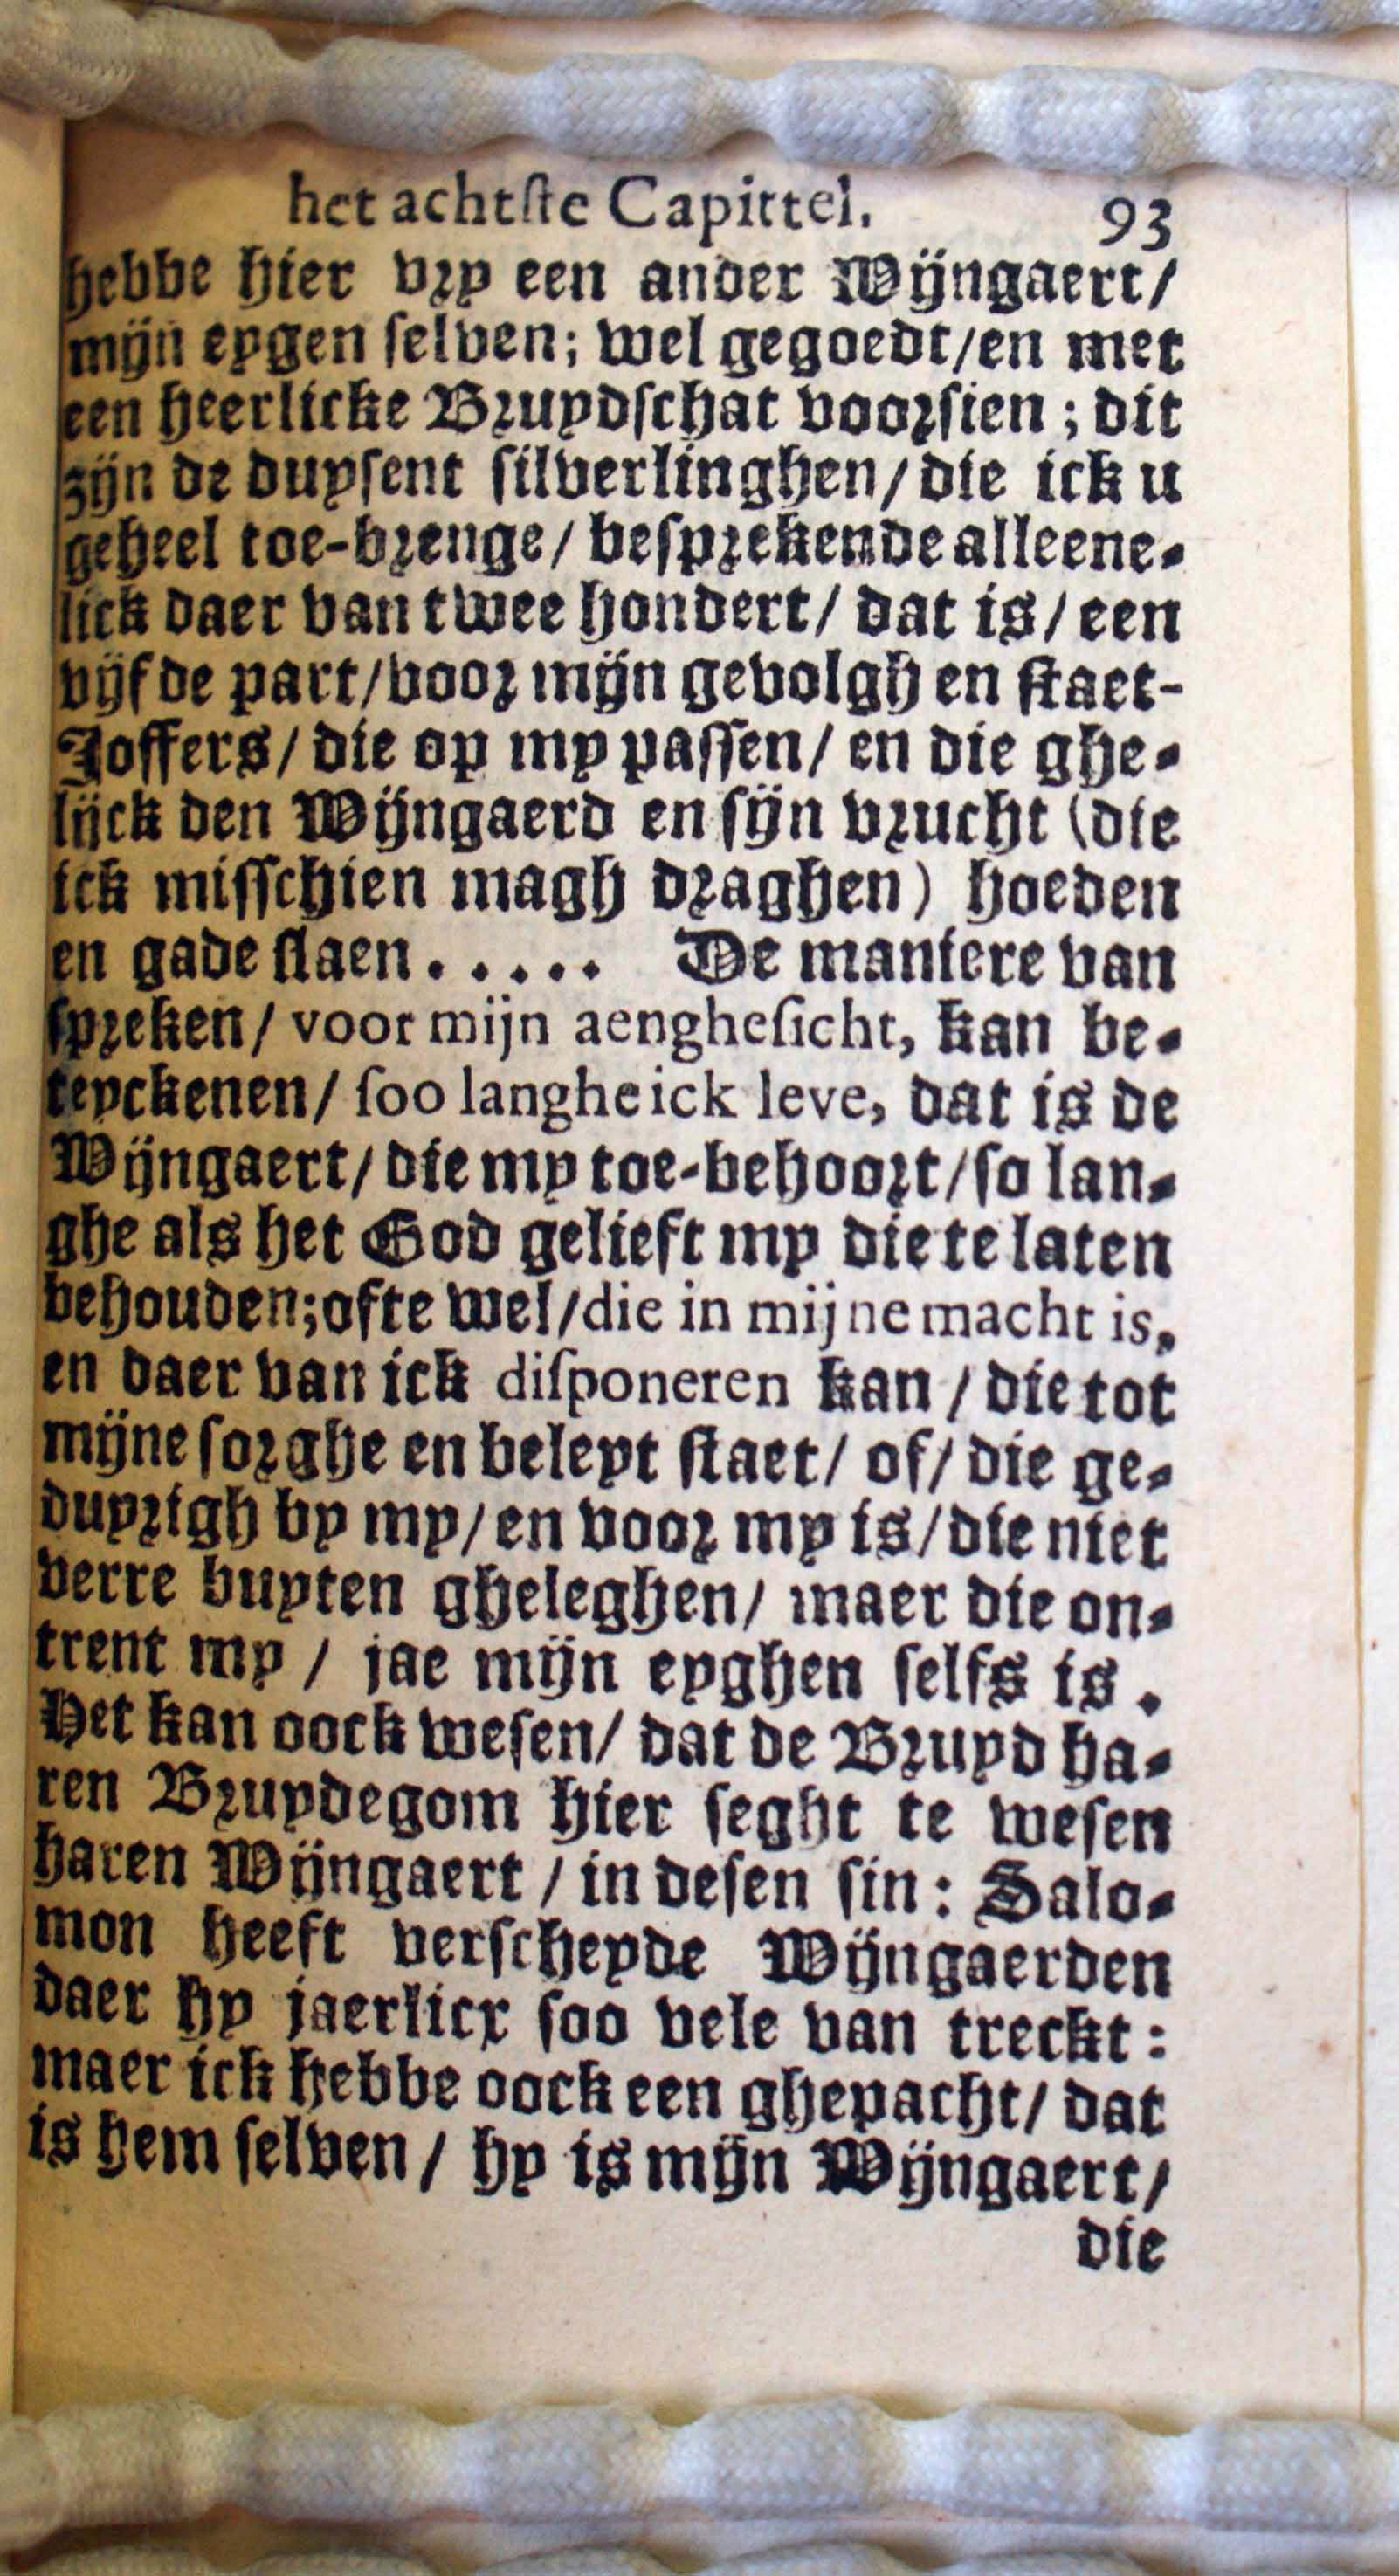 het achtſte Capittel. 93
hebbe hier vry een ander Wijngaert/
mijn eygen ſelven; wel gegoedt/en met
een heerlicke Bruydſchat voorſien; dit
zijn de duyſent ſilverlinghen/ die ick u
geheel toe-brenge/ beſprekende alleene-
lick daer van twee hondert/ dat is/ een
vijfde part/voor mijn gevolgh en ſtaet-
Joffers/ die op my paſſen/ en die ghe-
lijck den Wijngaerd en ſijn vrucht (die
ick miſſchien magh draghen) hoeden
en gade ſlaen. . . . . De maniere van
ſpreken/ voor mijn aengheſicht, kan be-
teyckenen/ ſoo langhe ick leve, dat is de
Wijngaert/ die my toe-behoort/ſo lan-
ghe als het God gelieft my die te laten
behouden;ofte wel/die in mijne macht is,
en daer van ick diſponeren kan / die tot
mijne ſorghe en beleyt ſtaet/ of/ die ge-
duyrigh by my/ en voor my is/die niet
verre buyten gheleghen/ maer die on-
trent my / jae mijn eyghen ſelfs is.
Het kan oock weſen/ dat de Bruyd ha-
ren Bruydegom hier ſeght te weſen
haren Wijngaert / in deſen ſin: Salo-
mon heeft verſcheyde Wijngaerden
daer hy jaerlicx ſoo vele van treckt:
maer ick hebbe oock een ghepacht/ dat
is hem ſelven/ hy is mijn Wijngaert/
die